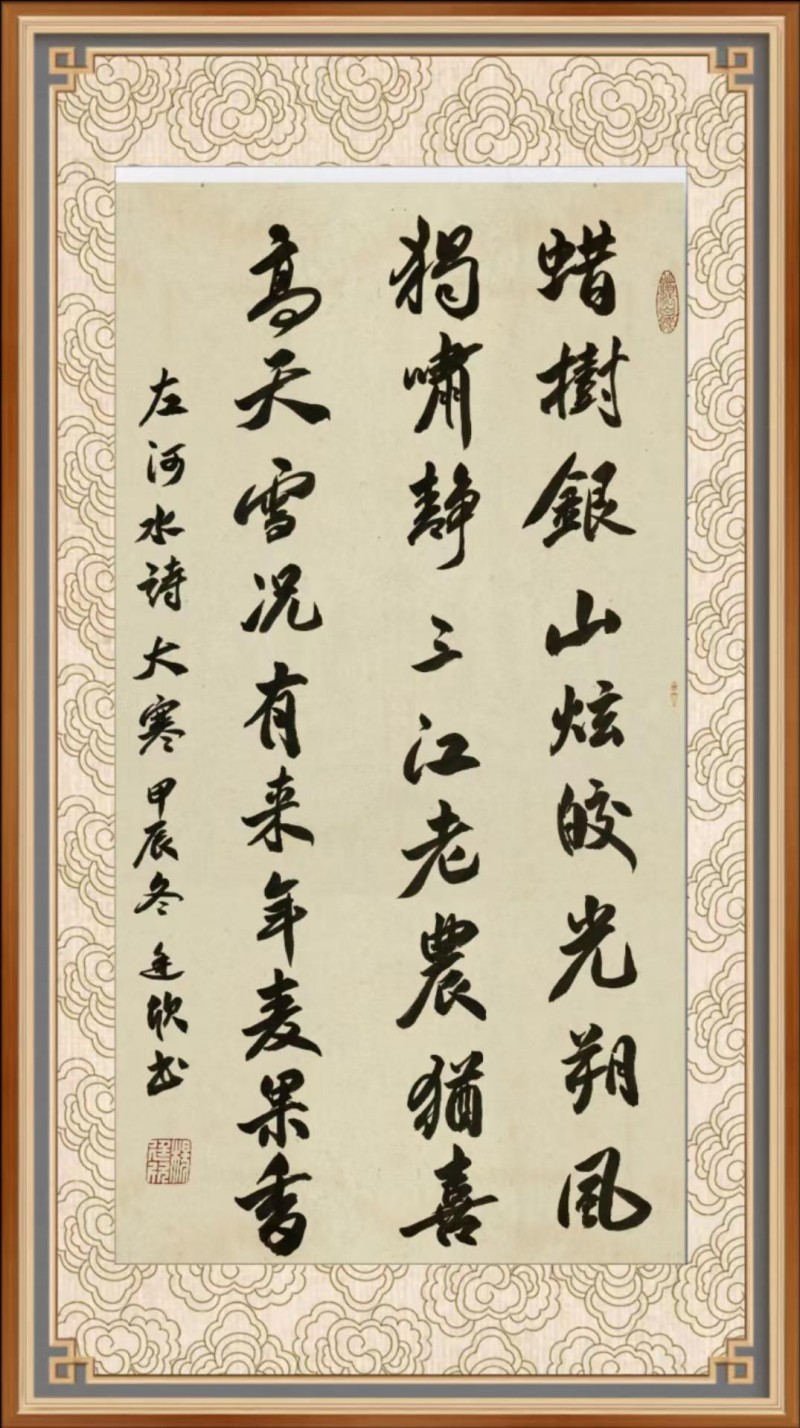 蜡樹銀山炫皎光朔風
獨嘯靜三江老農猶喜
高天雪况有来年麦果香
左河水詩大寒甲辰冬廷欣书